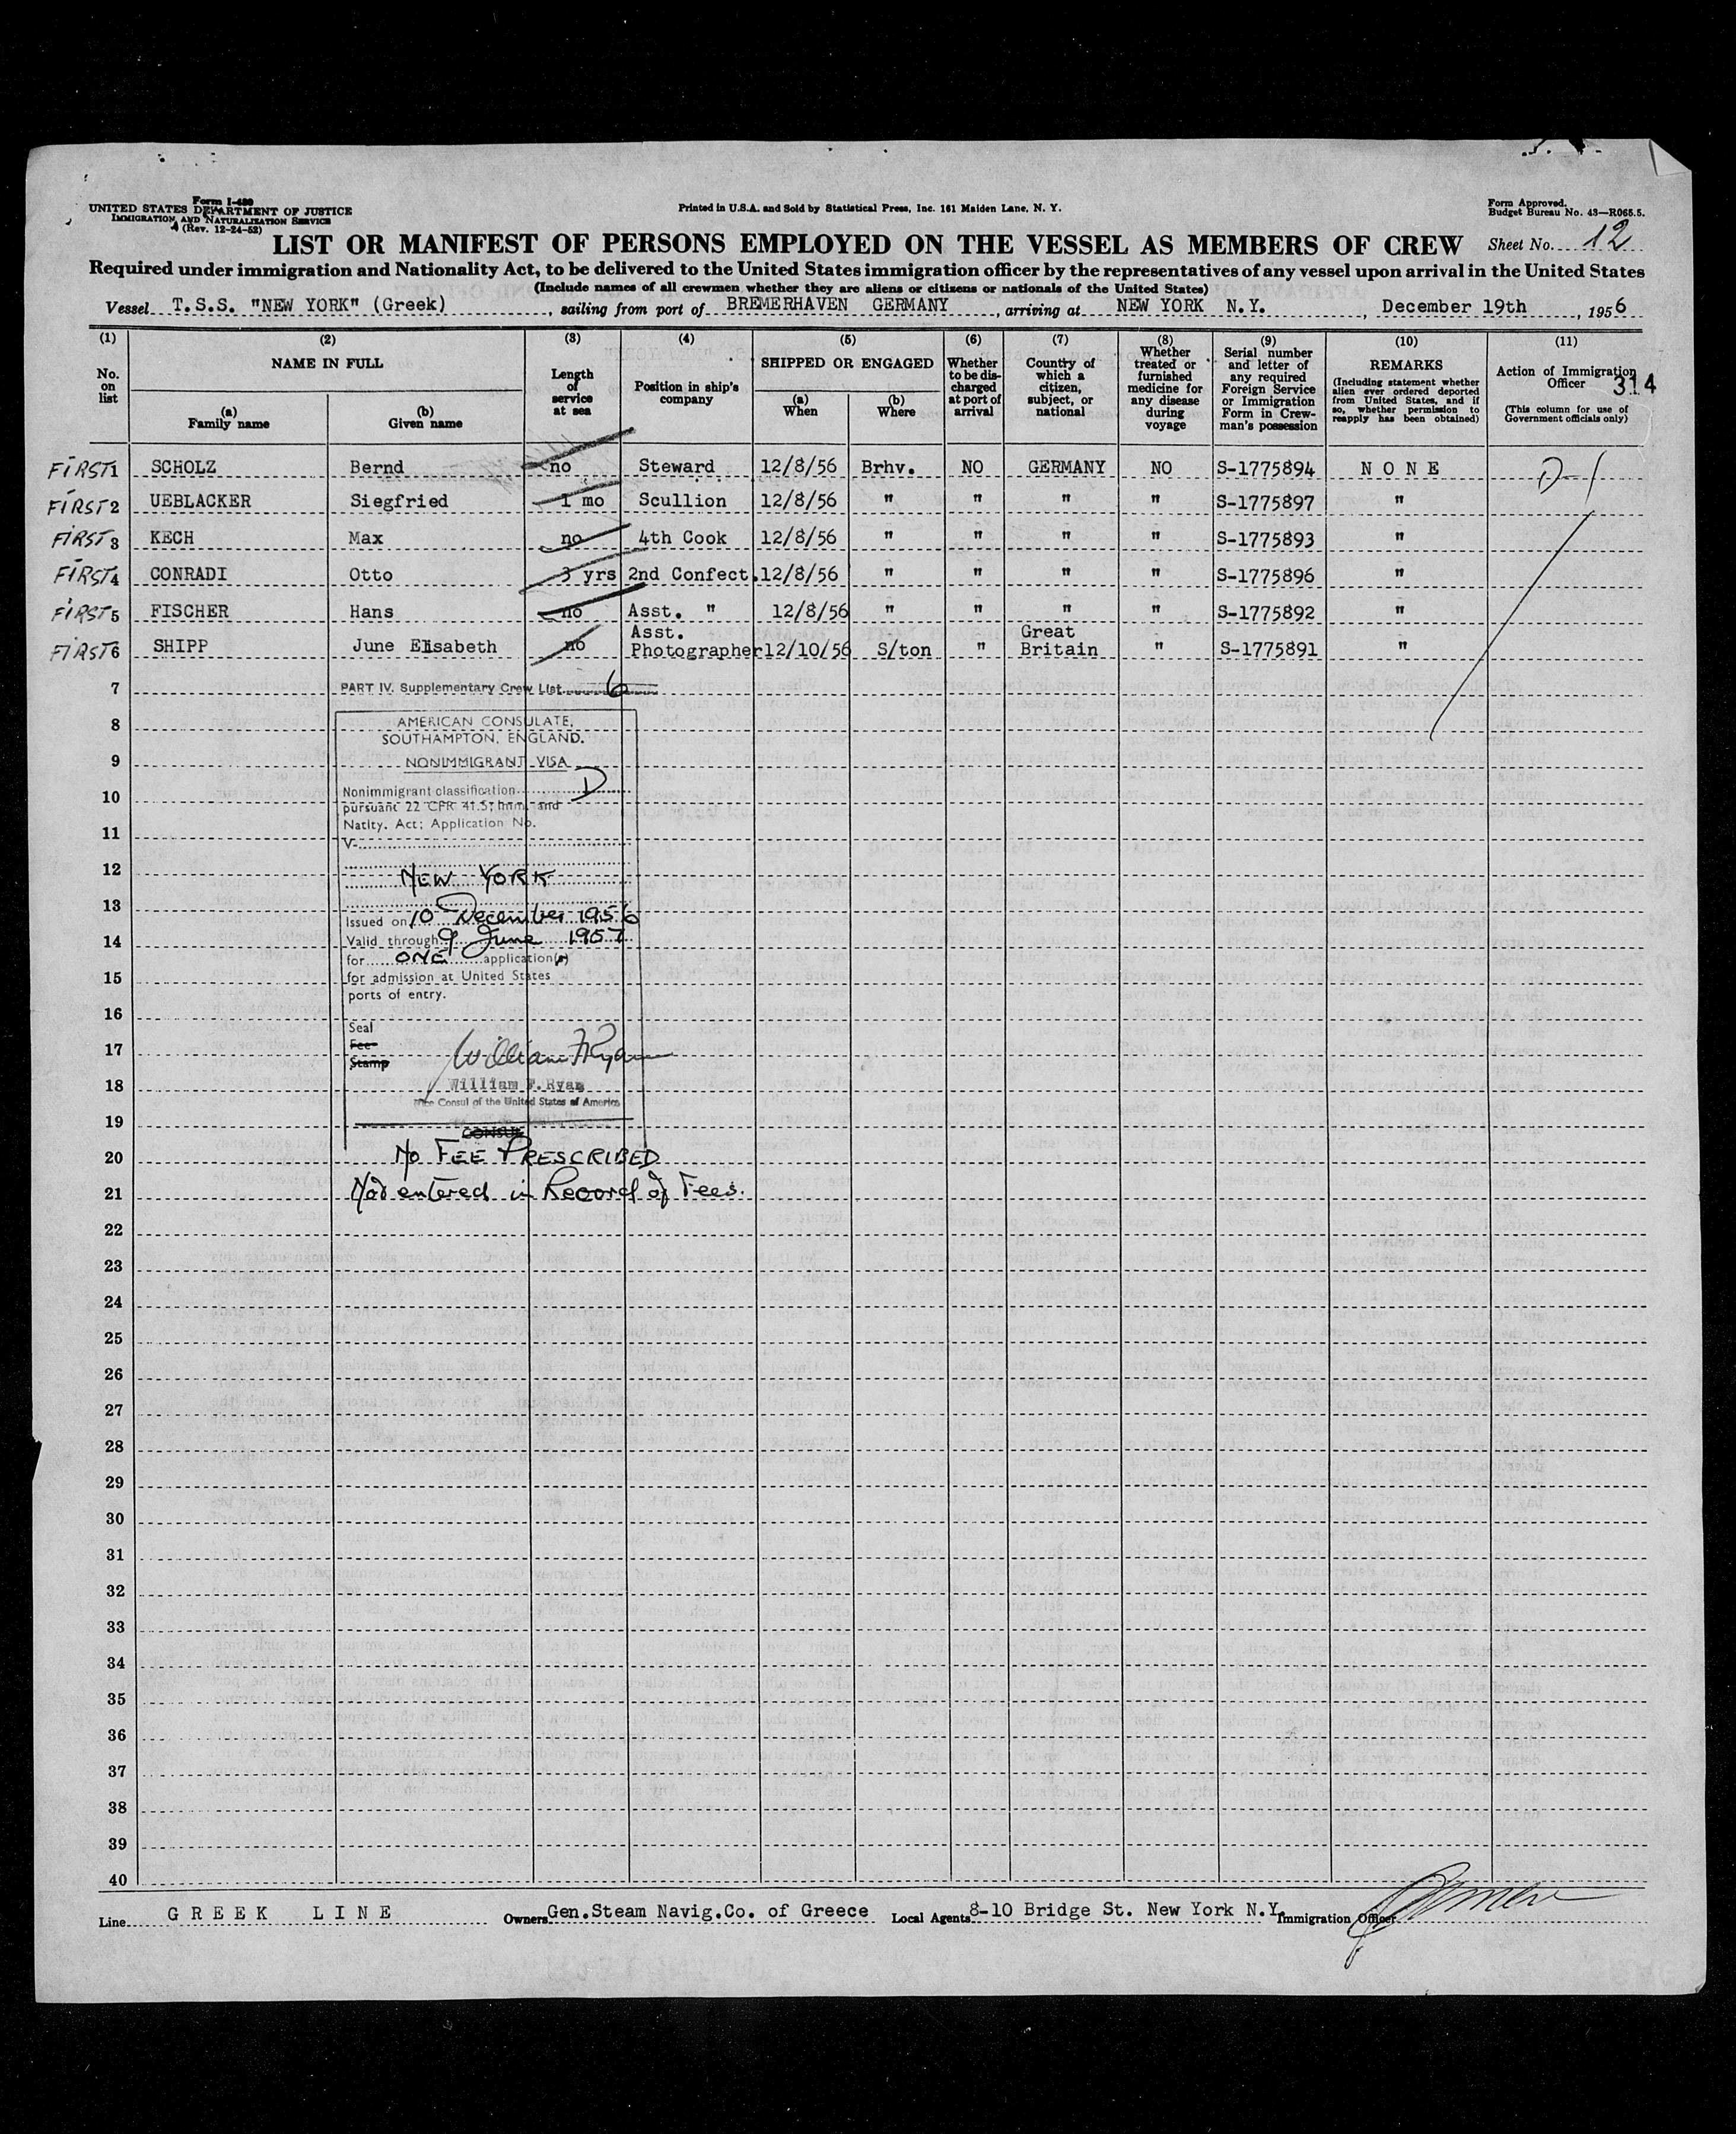 Form I-480
UNITED STATES DEPARTMENT OF JUSTICE
IMMIGRATION AND NATURALIZATION SERVICE
(Rev. 12-24-52)
Printed in U.S.A. and Sold by Statistical Press, Inc. 161 Maiden Lane, N. Y.
Form Approved.
Budget Bureau No. 43—R065.5.
LIST OR MANIFEST OF PERSONS EMPLOYED ON THE VESSEL AS MEMBERS OF CREW Sheet No. 12
Required under immigration and Nationality Act, to be delivered to the United States immigration officer by the representatives of any vessel upon arrival in the United States
(Include names of all crewmen whether they are aliens or citizens or nationals of the United States)
Vessel T.S.S. "NEW YORK" (Greek), sailing from port of BREMERHAVEN GERMANY, arriving at NEW YORK N.Y., December 19th, 1956
(1) (2) (3) (4) (5) (6) (7) (8) (9) (10) (11)
No. on list
NAME IN FULL
(a) Family name
(b) Given name
Length of service at sea
Position in ship's company
SHIPPED OR ENGAGED
(a) When
(b) Where
Whether to be discharged at port of arrival
Country of which a citizen, subject, or national
Whether treated or furnished medicine for any disease during voyage
Serial number and letter of any required Foreign Service or Immigration Form in Crewman's possession
REMARKS
(Including statement whether alien ever ordered deported from United States, and if so, whether permission to reapply has been obtained)
Action of Immigration Officer 314
(This column for use of Government officials only)
FIRST 1 SCHOLZ Bernd no Steward 12/8/56 Brhv. NO GERMANY NO S-1775894 N O N E D-1
FIRST 2 UEBLACKER Siegfried 1 mo Scullion 12/8/56 " " " " S-1775897 "
FIRST 3 KECH Max no 4th Cook 12/8/56 " " " " S-1775893 "
FIRST 4 CONRADI Otto 3 yrs 2nd Confect. 12/8/56 " " " " S-1775896 "
FIRST 5 FISCHER Hans no Asst. " 12/8/56 " " " " S-1775892 "
FIRST 6 SHIPP June Elisabeth no Asst. Photographer 12/10/56 S/ton " Great Britain " S-1775891 "
7
PART IV. Supplementary Crew List 6
8
AMERICAN CONSULATE,
SOUTHAMPTON, ENGLAND.
9
NONIMMIGRANT VISA
10
Nonimmigrant classification D
pursuant 22 CFR 41.5; Imm. and
Natlty. Act; Application No.
11
V-
12
NEW YORK
13
Issued on 10 December 1956
14
Valid through 9 June 1957
for ONE application(s)
15
for admission at United States
ports of entry.
16
Seal
17
Fee
Stamp
William F Ryan
18
William F. Ryan
Vice Consul of the United States of America
19
CONSUL
20
NO FEE PRESCRIBED
21
Not entered in Record of Fees.
22
23
24
25
26
27
28
29
30
31
32
33
34
35
36
37
38
39
40
Line GREEK LINE Owners Gen.Steam Navig.Co. of Greece Local Agents 8-10 Bridge St. New York N.Y. Immigration Officer